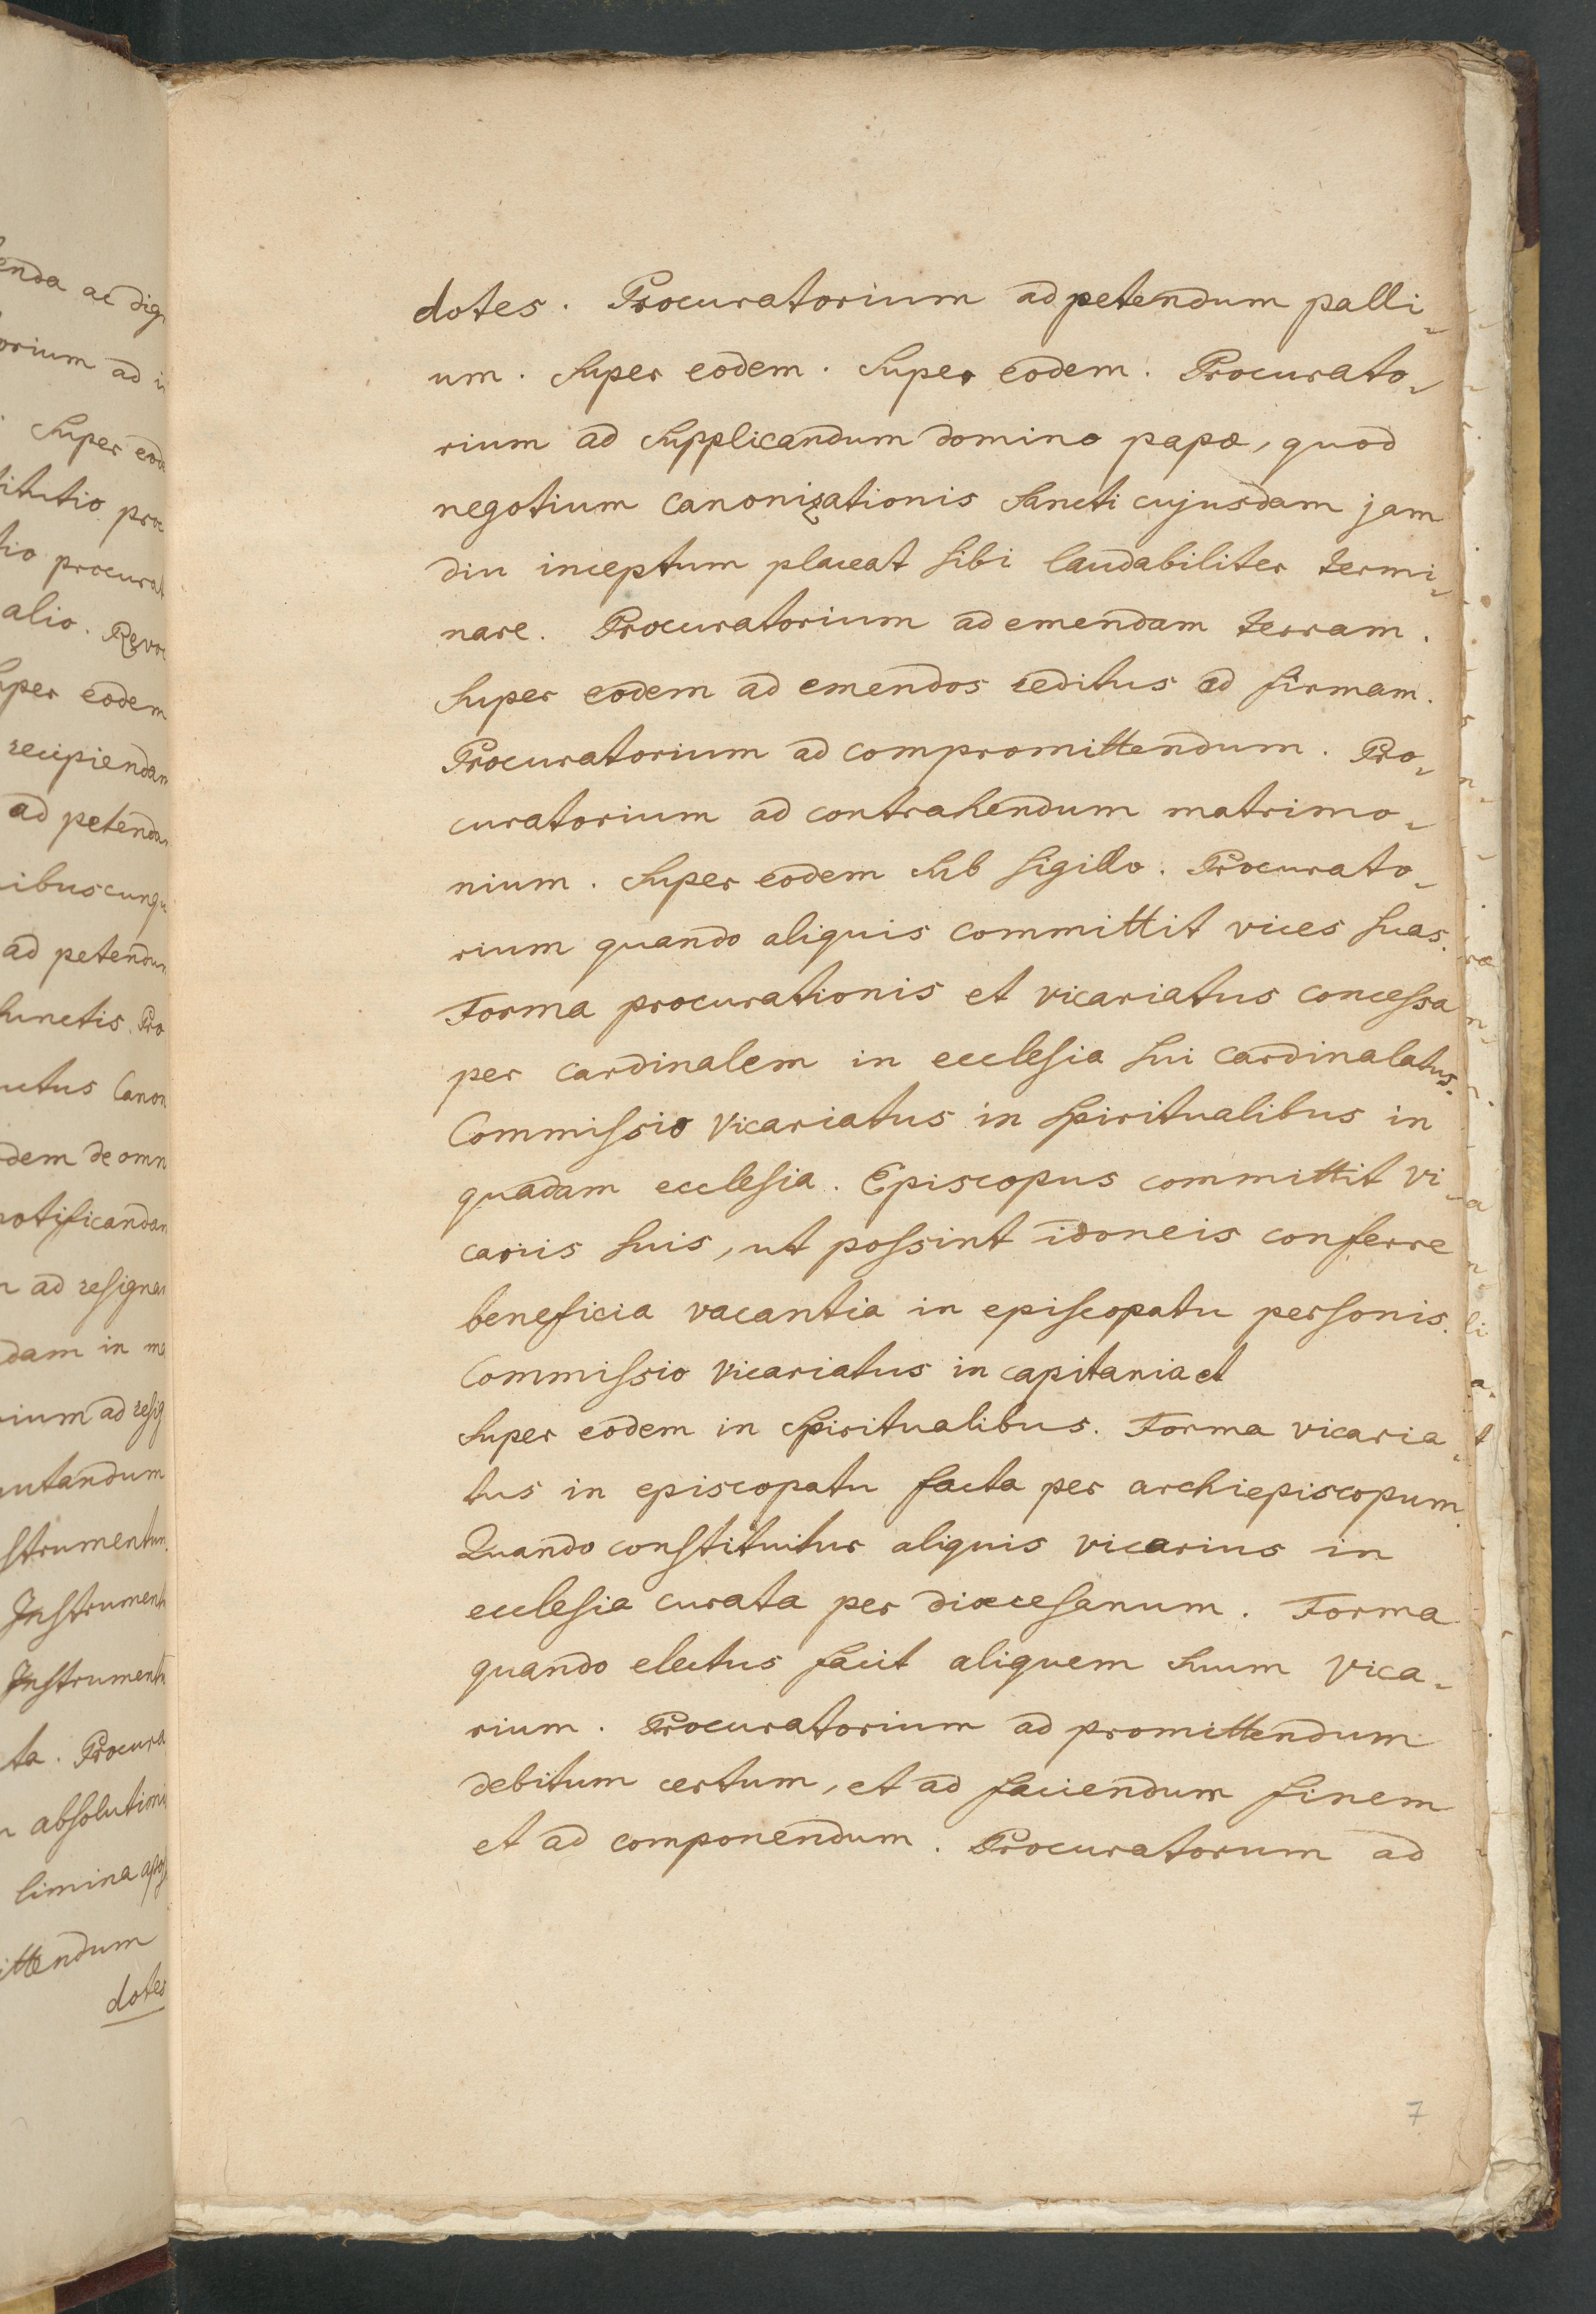 enda ac dig
orium ad i
Super eod
titutio proc
tio procurat
alio. Revoc
uper eodem
recipiendam
ad petendam
ibuscunqu
ad petendum
functis. Pro
utus Canon
dem de omn
notificandam
m ad resignan
dam in
rium ad resig
mutandum
strumentum.
Instrument
Instrument
ta. Procura
absolutioni
limina apos
ittendum
dotes
dotes. Procuratorium ad petendum palli-
um. Super eodem. Super eodem. Procurato-
rium ad supplicandum domino papæ, quod
negotium canonizationis sancti cujusdam jam
diu inceptum placeat sibi laudabiliter termi-
nare. Procuratorium ad emendam terram.
Super eodem ad emendos reditus ad firmam.
Procuratorium ad compromittendum. Pro-
curatorium ad contrahendum matrimo-
nium. Super eodem sub sigillo. Procurato-
rium quando aliquis committit vices suas.
Forma procurationis et vicariatus concessa
per cardinalem in ecclesia sui cardinalatus.
Commissio vicariatus in spiritualibus in
quadam ecclesia. Episcopus committit vi-
cariis suis, ut possint idoneis conferre
beneficia vacantia in episcopatu personis.
Commissio vicariatus in capitania et
Super eodem in spiritualibus. Forma vicaria-
tus in episcopatu facta per archiepiscopum.
Quando constituitur aliquis vicarius in
ecclesia curata per diœcesanum. Forma
quando electus facit aliquem suum vica-
rium. Procuratorium ad promittendum
debitum certum, et ad faciendum finem
et ad componendum. Procuratorum ad
7